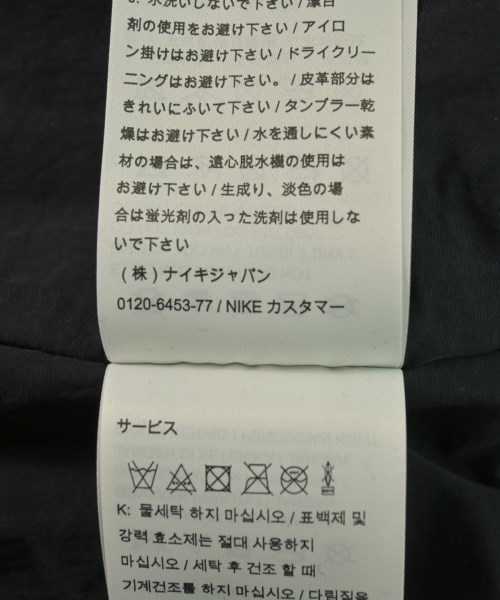 J: 水洗いしないで下さい / 漂白
剤の使用をお避け下さい / アイロ
ン掛けはお避け下さい / ドライクリー
ニングはお避け下さい。 / 皮革部分は
きれいにふいて下さい / タンブラー乾
燥はお避け下さい / 水を通しにくい素
材の場合は、遠心脱水機の使用は
お避け下さい / 生成り、淡色の場
合は蛍光剤の入った洗剤は使用しな
いで下さい
(株) ナイキジャパン
0120-6453-77 / NIKE カスタマー
サービス
K: 물세탁 하지 마십시오 / 표백제 및
강력 효소제는 절대 사용하지
마십시오 / 세탁 후 건조 할 때
기계건조를 하지 마십시오 / 다림질을